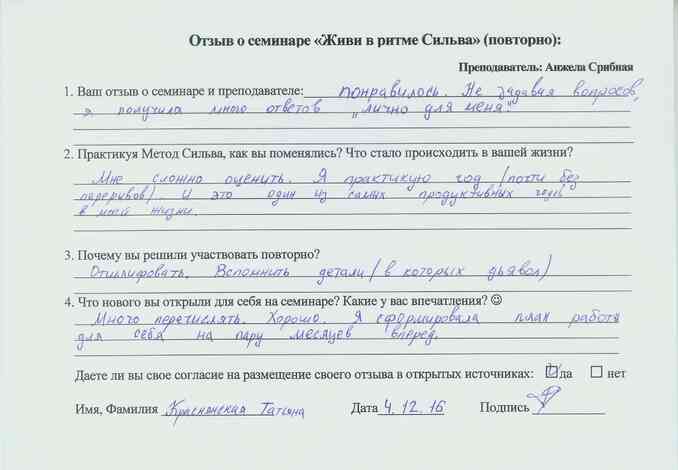 Отзыв о семинаре «Живи в ритме Сильва» (повторно):
Преподаватель: Анжела Срибная
1. Ваш отзыв о семинаре и преподавателе: понравилось. Не задавая вопросов,
я получила много ответов „лично для меня"
2. Практикуя Метод Сильва, как вы поменялись? Что стало происходить в вашей жизни?
Мне сложно оценить. Я практикую год (почти без
перерывов). И это один из самых продуктивных годов
в моей жизни.
3. Почему вы решили участвовать повторно?
Отшлифовать. Вспомнить детали (в которых дьявол)
4. Что нового вы открыли для себя на семинаре? Какие у вас впечатления? ☺
Много перечислять. Хорошо. Я сформировала план работы
для себя на пару месяцев вперед.
Даете ли вы свое согласие на размещение своего отзыва в открытых источниках: ☑ да ☐ нет
Имя, Фамилия Краснянская Татьяна Дата 4.12.16 Подпись